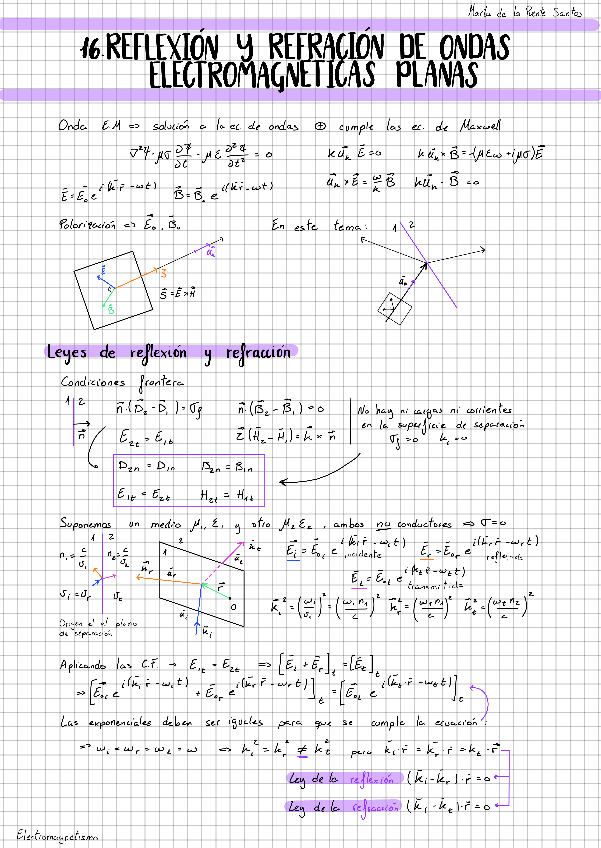 María de la Puente Santos
16. REFLEXIÓN Y REFRACIÓN DE ONDAS
ELECTROMAGNETICAS PLANAS
Onda EM ⇒ solución a la ec. de ondas ⊕ cumple las ec. de Maxwell
∇²Ψ - μσ ∂Ψ/∂t - με ∂²Ψ/∂t² = 0
k u⃗ₖ E⃗ = 0
k u⃗ₖ × B⃗ = -(με ω + iμσ) E⃗
E⃗ = E⃗₀ e^{i(k⃗·r⃗ - ωt)}
B⃗ = B⃗₀ e^{i(k⃗·r⃗ - ωt)}
u⃗ₖ × E⃗ = ω/k B⃗
k u⃗ₖ · B⃗ = 0
Polarización ⇒ E⃗₀, B⃗₀
En este tema:
1 2
u⃗ₖ
E⃗
S⃗
B⃗
S⃗ = E⃗ × H⃗
u⃗ₖ
Leyes de reflexión y refracción
Condiciones frontera
1 2
n⃗
n⃗·(D⃗₂ - D⃗₁) = σf
n⃗·(B⃗₂ - B⃗₁) = 0
E₂t = E₁t
τ⃗(H⃗₂ - H⃗₁) = k⃗ × n⃗
No hay ni cargas ni corrientes
en la superficie de separación
σf = 0 k⃗ = 0
D₂n = D₁n B₂n = B₁n
E₁t = E₂t H₂t = H₁t
Suponemos un medio μ₁, ε₁ y otro μ₂ ε₂, ambos no conductores ⇒ σ = 0
1 2
n₁ = c/v₁ n₂ = c/v₂
vi = vr vt
Origen el el plano
de separación
1 2
k⃗r
u⃗r
k⃗t
u⃗t
r⃗
O
u⃗i
k⃗i
E⃗i = E⃗oi e^{i(k⃗i·r⃗ - ωi t)} incidente
E⃗r = E⃗or e^{i(k⃗r·r⃗ - ωr t)} reflejada
E⃗t = E⃗ot e^{i(k⃗t·r⃗ - ωt t)} transmitida
k⃗i² = (ωi/vi)² = (ωi n₁/c)² k⃗r² = (ωr n₁/c)² k⃗t² = (ωt n₂/c)²
Aplicando las C.F → E₁t = E₂t ⇒ [E⃗i + E⃗r]t = [E⃗t]t
⇒ [E⃗oi e^{i(k⃗i·r⃗ - ωi t)} + E⃗or e^{i(k⃗r·r⃗ - ωr t)}]t = [E⃗ot e^{i(k⃗t·r⃗ - ωt t)}]t
Las exponenciales deben ser iguales para que se cumpla la ecuación:
⇒ ωi = ωr = ωt = ω ⇒ ki² = kr² ≠ kt² para k⃗i·r⃗ = k⃗r·r⃗ = k⃗t·r⃗
Ley de la reflexión (k⃗i - k⃗r)·r⃗ = 0
Ley de la refracción (k⃗i - k⃗t)·r⃗ = 0
Electromagnetismo